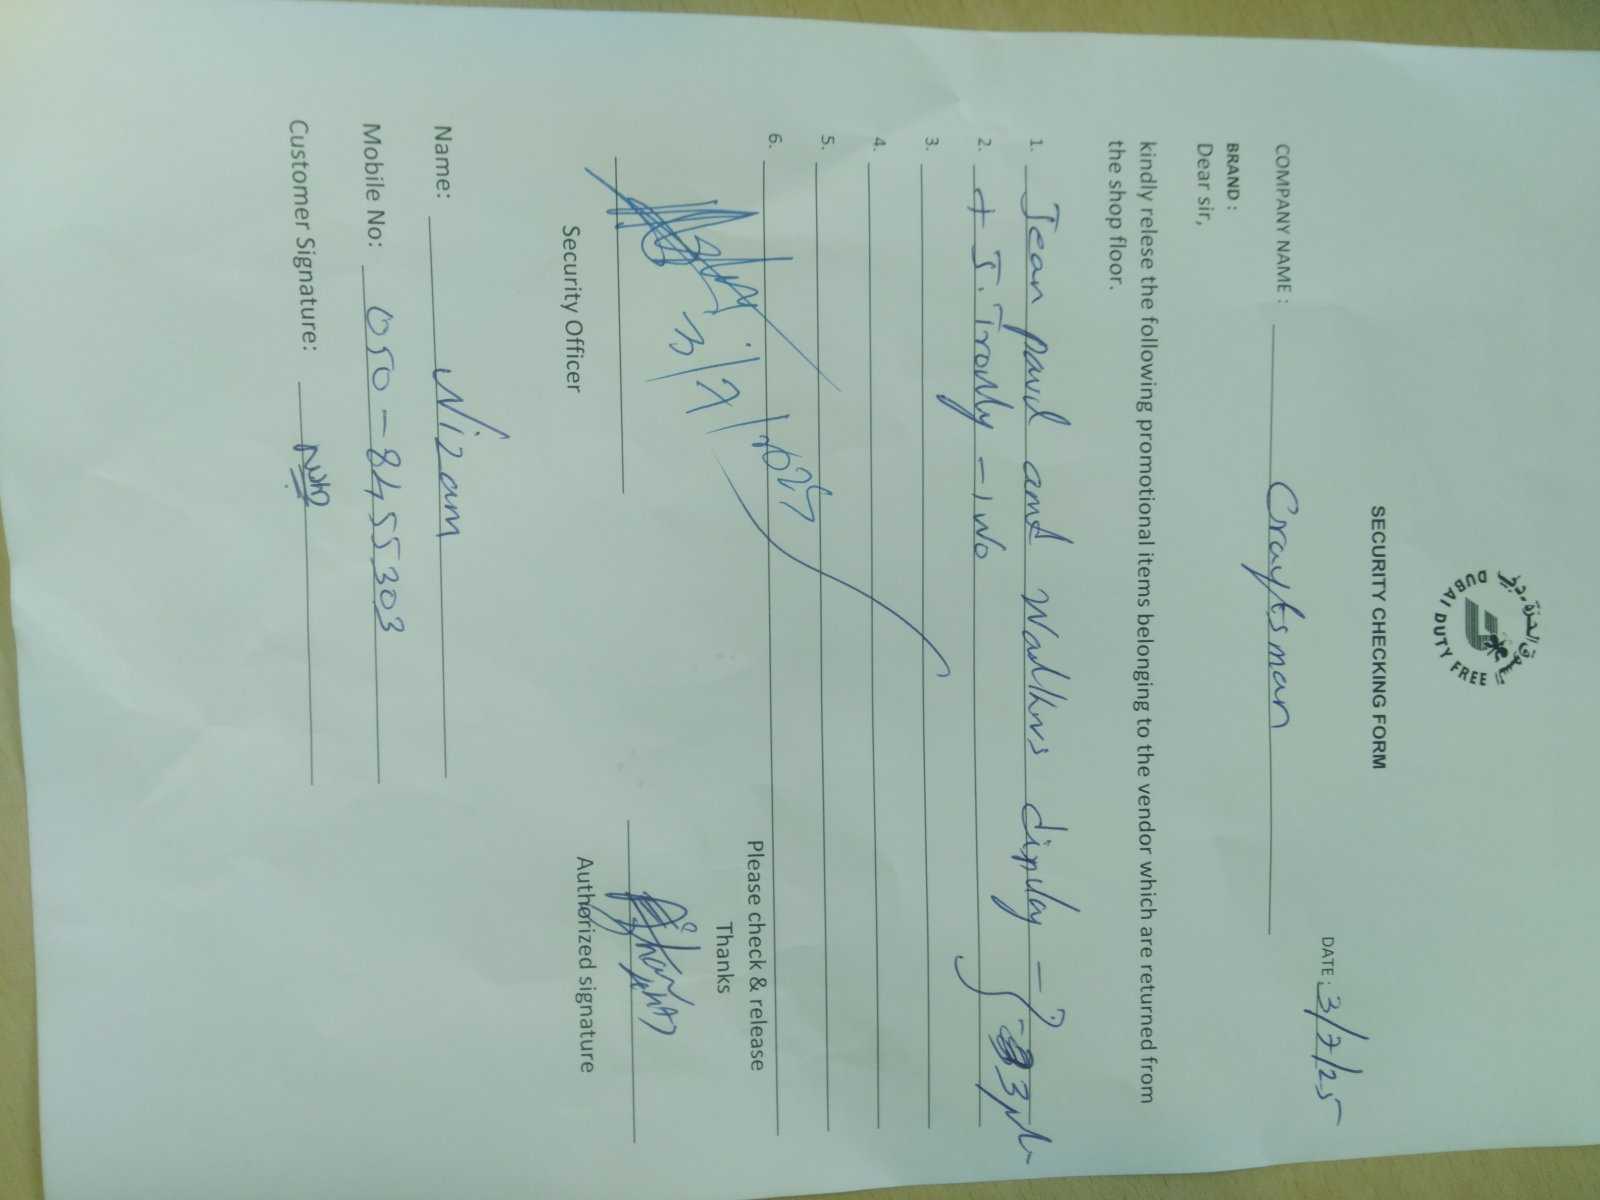 سوق دبي الحرة
DUBAI DUTY FREE
SECURITY CHECKING FORM
DATE: 3/7/25
COMPANY NAME: Craytsman
BRAND:
Dear sir,
kindly relese the following promotional items belonging to the vendor which are returned from
the shop floor.
1. Jean paul and display - 3
2. + J. Trolly - 1 No
3.
4.
5.
6.
3/7/2025
Please check & release
Thanks
Security Officer
Authorized signature
Name: Nizam
Mobile No: 050-8455303
Customer Signature: